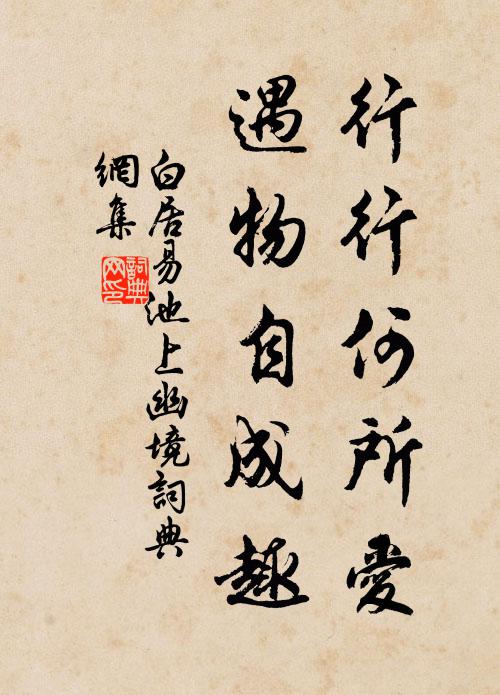 行行何所愛
遇物自成趣
白居易池上幽境詞典
網集
詞典
网印